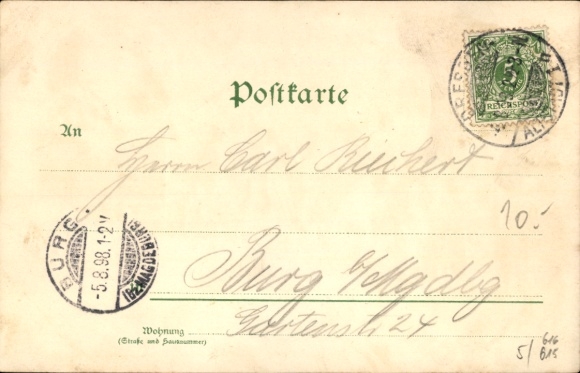 5
REICHSPOST
DRESDEN
ALTST.
Postkarte
An
Herrn Carl Riechert
10.-
BURG
-5.8.98.1-2N
(BZ. MAGDEBURG)
Burg b/Mgdbg
Gartenstr 24
Wohnung
(Straße und Hausnummer)
5/ 616
615